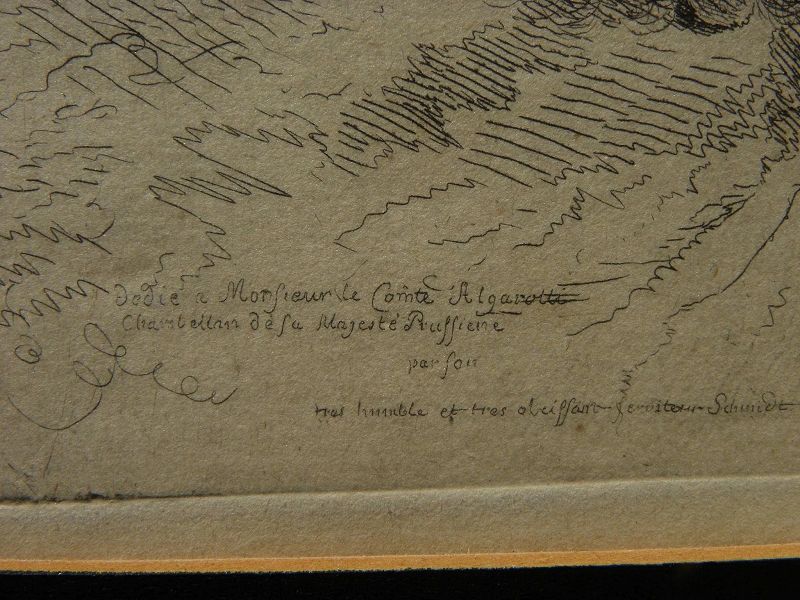 Dedié a Monsieur le Comte Algarotti
Chambellan de sa Majesté Prussiene
par son
tres humble et tres obeissant serviteur Schmidt